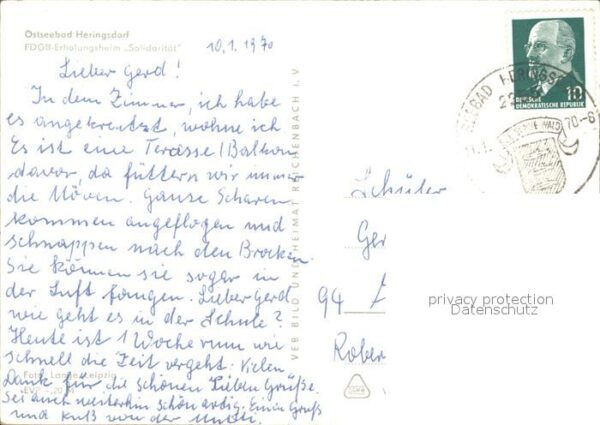 Ostseebad Heringsdorf
FDGB-Erholungsheim „Solidarität"
10.1.1970
Lieber Gerd!
In dem Zimmer, ich habe
es angekreutzt, wohne ich
Es ist eine Terasse/Balkon
davor, da füttern wir immer
die Möven. Ganze Scharen
kommen angeflogen und
schnappen nach den Brocken.
Sie können sie sogar in
der Luft fangen. Lieber Gerd,
wie geht es in der Schule?
Heute ist 1 Woche rum wie
schnell die Zeit vergeht. Vielen
Dank für die schönen lieben Grüße.
Sei auch weiterhin schön artig. Einen Gruß
und Kuß von der Mutti.
Foto: Leipzig
VEB BILD UND HEIMAT REICHENBACH I. V.
10
DEUTSCHE
DEMOKRATISCHE REPUBLIK
SEEBAD HERINGS
70-8
Schüler
Ger
94
Rober
privacy protection
Datenschutz